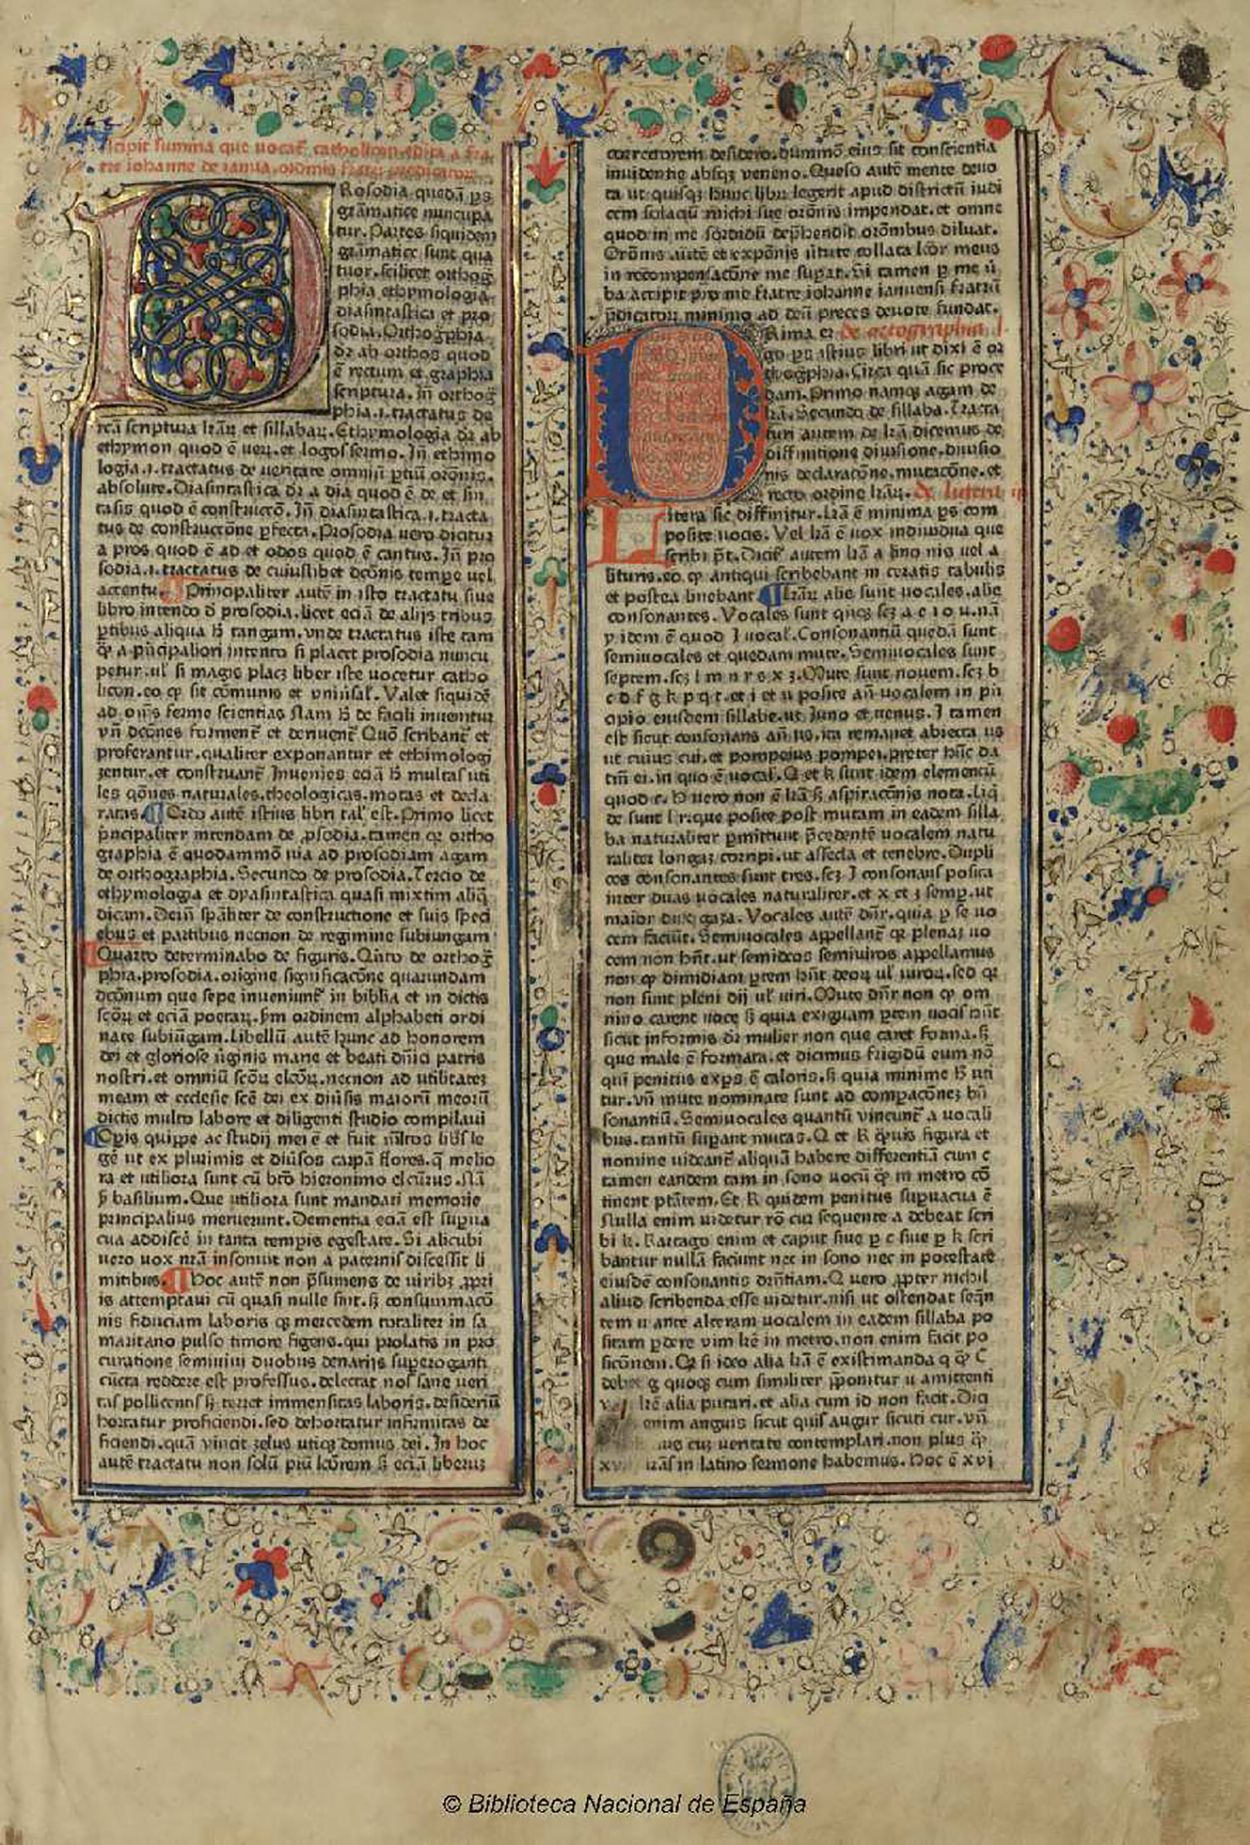 Incipit summa que uocat̄ catholicon. edita a fra-
tre iohanne de ianua. ordinis fratrū predicatorū
Rosodia quedā ꝑs
grāmatice nuncupa
tur. Partes siquidem
grāmatice sunt qua
tuor. scilicet orthog̃
phia ethymologia
diasintastica et pro
sodia. Orthog̃phia
dr̄ ab orthos quod
ē rectum et graphia
scriptura. Jn̄ orthog̃
phia .i. tractatus de
rcā scriptura lr̄aꝝ et sillabaꝝ. Ethymologia dr̄ ab
ethymon quod ē ueꝝ. et logos sermo. Jn̄ ethimo
logia .i. tractatus de ueritate omniū ꝑtiū orōnis.
absolute. Diasintastica dr̄ a dia quod ē de et sin
tasis quod ē construccō. Jn̄ diasintastica .i. tracta
tus de construccōne ꝑfecta. Prosodia uero dicitur
a pros quod ē ad et odos quod ē cantus. Jn̄ pro
sodia .i. tractatus de cuiuslibet dcōnis tempe uel
accentu. Principaliter autē in isto tractatu siue
libro intendo d̄ prosodia. licet eciā de alijs tribus
ꝑtibus aliqua h̄ tangam. vnde tractatus iste tam
q̄ a pūcipaliori intento si placet prosodia nuncu
petur. ul̄ si magis placꝫ liber iste uocetur catho
licon. eo ꝙ sit cōmunis et vniūsal̄. Valet siquidē
ad oīs ferme scientias Nam h̄ de facili inuenitur
vn̄ dcōnes forment̄ et deriuent̄ Quō scribant̄ et
proferantur. qualiter exponantur et ethimologi
zentur. et construant̄ Inuenies eciā h̄ multas uti
les qōnes naturales. theologicas. motas et decla
ratas Ordo autē istius libri tal̄ est. Primo licet
pncipaliter intendam de ꝓsodia. tamen qꝛ ortho
graphia ē quodammō uia ad prosodiam agam
de orthographia. Secundo de prosodia. Tercio de
ethymologia et dyasintastica quasi mixtim aliq̄
dicam. Deīn spāliter de constructione et suis speci
ebus et partibus necnon de regimine subiungam
Quarto determinabo de figuris. Qn̄to de orthog̃
phia. prosodia. origine significacōne quarundam
dcōnum que sepe inueniunt̄ in biblia et in dictis
scōꝝ et eciā poetaꝝ. ẜm ordinem alphabeti ordi
nate subiūgam. Libellū autē hunc ad honorem
dei et gloriose ūginis marie et beati dnīci patris
nostri. et omniū scōꝝ elcōꝝ. necnon ad utilitateꝫ
meam et ecclesie scē dei ex diūsis maiorū meorū
dictis multo labore et diligenti studio compilaui
Opis quippe ac studij mei ē et fuit ml̄tos libros le
gē ut ex plurimis et diūsos carpā flores. q̄ melio
ra et utiliora sunt cū bto hieronimo electurus. Nā
ẜ basilium. Que utiliora sunt mandari memorie
principalius meruerunt. Dementia eciā est supua
cua addiscē in tanta tempis egestate. Si alicubi
uero uox nrā insonuit non a paternis discessit li
mitibus. Hoc autē non psumens de uiribꝫ ꝓpri
is attemptaui cū quasi nulle sint. sꝫ consummacō
nis fiduciam laboris qꝫ mercedem totaliter in sa
maritano pulso timore figens. qui prolatis in pro
curatione seminiui duobus denarijs superoganti
cūcta reddere est professus. delectat nos sane ueri
tas pollicentis sꝫ terret immensitas laboris. desideriū
hortatur proficiendi. sed dehortatur infirmitas de
ficiendi. quā vincit zelus utiqꝫ domus dei. In hoc
autē tractatu non solū piū lcōrem sꝫ eciā liberuꝫ
correctorem desidero. dummō eius sit conscientia
inuidentie absqꝫ veneno. Queso autē mente deuo
ta ut quisqꝫ hunc librū legerit apud districtū iudi
cem solaciū michi sue orōnis impendat. et omne
quod in me sordidū dep̄hendit orōnibus diluat.
Orōnis autē et expōnis ūtute collata lcōr meus
in recompensacōne me supat. Si tamen ꝑ me ū
ba accipit pro me fratre iohanne ianuensi fratrū
p̄dicatorū minimo ad deū preces deuote fundat.
Rima er de ortographia
go ꝑs istius libri ut dixi ē oꝛ
thog̃phia. Circa quā sic proce
dam. Primo namqꝫ agam de
lrā. Secundo de sillaba. tracta
turi autem de lrā dicemus de
diffinitione diuisione. diuisio
nis declaracōne. mutacōne. et
recto ordine lraꝝ. De littera
Litera sic diffinitur. lrā ē minima ꝑs com
posite uocis. Vel lrā ē uox indiuidua que
scribi pt̄. Dicit̄ autem lrā a lino nis uel a
lituris. eo. ꝙ antiqui scribebant in ceratis tabulis
et postea linebant lraꝝ alie sunt uocales. alie
consonantes. Vocales sunt qnqꝫ scꝫ a e i o u. nā
y idem ē quod J uocal̄. Consonantiū quedā sunt
semiuocales et quedam mute. Semiuocales sunt
septem. scꝫ l m n r s x z. Mute sunt nouem. scꝫ b
c d f g k p q t. et i et u posite an̄ uocalem in pn̄
cipio eiusdem sillabe. ut Juno et uenus. J tamen
est sicut consonans an̄ us. ita remanet abiecta us
ut cuius cui. et pompeius pompei. preter hūc da
tiū ei. in quo ē uocal̄. Q et k sunt idem elementū
quod c. H uero non ē lrā sꝫ aspiracōnis nota. liq̄
de sunt l r. que posite post mutam in eadem silla
ba naturaliter ꝑmittunt p̄cedentē uocalem natu
raliter longaꝫ corripi. ut assecla et tenebre. Dupli
ces consonantes sunt tres. scꝫ J consonans posita
inter duas uocales naturaliter. et x et z semꝑ. ut
maior dux gaza. Vocales autē dn̄r. quia ꝑ se uo
cem faciūt. Semiuocales appellant̄ qꝛ plenaꝫ uo
cem non hn̄t. ut semideos semiuiros appellamus
non ꝙ dimidiam ꝑtem hn̄t deoꝝ ul̄ uiroꝝ. sed qꝛ
non sunt pleni dij ul̄ uiri. Mute dn̄r non ꝙ om
nino carent uoce sꝫ quia exiguam ꝑtem uocis hn̄t
sicut informis dr̄ mulier non que caret forma. sꝫ
que male ē formata. et dicimus frigidū eum nō
qui penitus expers ē caloris. sꝫ quia minime h̄ uti
tur. vn̄ mute nominate sunt ad compacōneꝫ bn̄
sonantiū. Semiuocales quantū vincunt̄ a uocali
bus. tantū supant mutas. Q et K q̄uis figura et
nomine uideant̄ aliquā habere differentiā cum c
tamen eandem tam in sono uocū q̄ in metro cō
tinent ptātem. Et K quidem penitus supuacua ē
Nulla enim uidetur rō cur sequente a debeat scri
bi k. Kartago enim et caput siue ꝑ c siue ꝑ k scri
bantur nullā faciunt nec in sono nec in potestate
eiusdē consonantis drn̄tiam. Q uero ꝓpter nichil
aliud scribenda esse uidetur. nisi ut ostendat seqn̄
tem u ante alteram uocalem in eadem sillaba po
sitam ꝑdere vim lrē in metro. non enim facit po
sicōnem. Qꝛ si ideo alia lrā ē existimanda q q̄ C
debet g quoqꝫ cum similiter p̄ponitur u amittenti
lrē alia putari. et alia cum id non facit. Dici
enim anguis sicut quis augur sicuti cur. vn̄
cuꝫ ueritate contemplari. non plus q̄
xvi lrās in latino sermone habemus. Hoc ē xvi
© Biblioteca Nacional de España